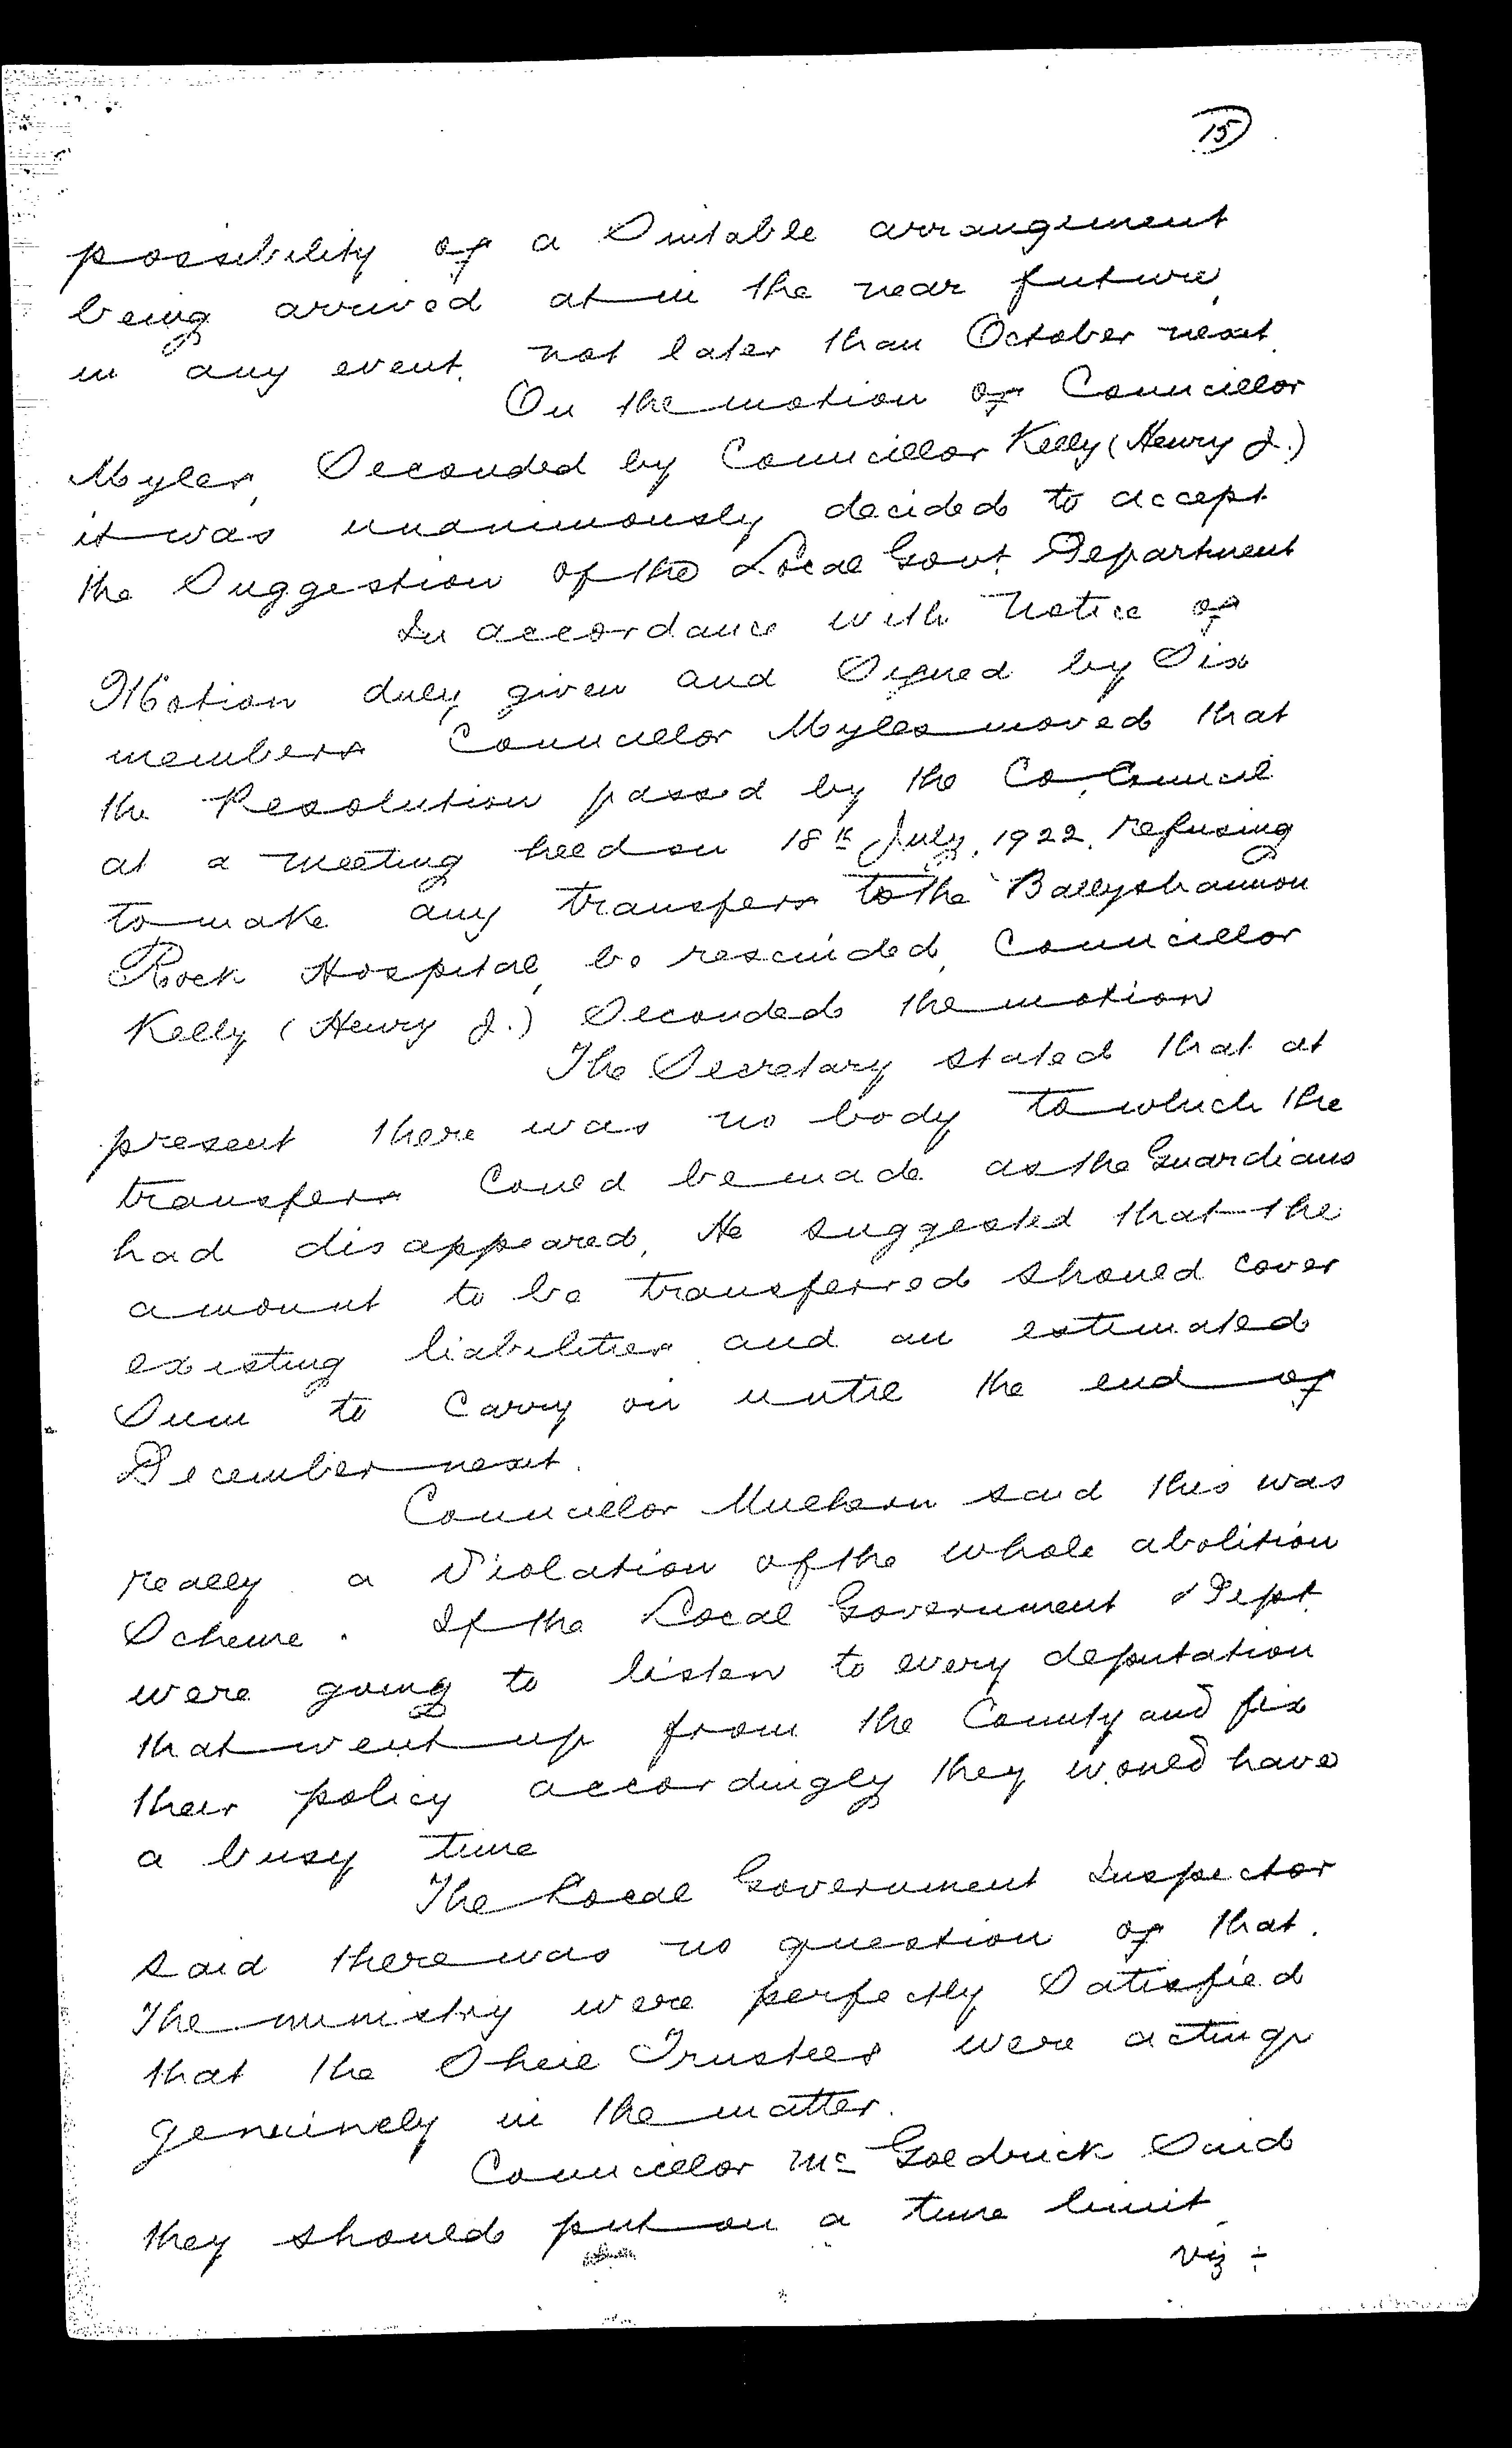 15
possibility of a Suitable arrangement
being arrived at in the near future,
in any event, not later than October next.
On the motion of Councillor
Myles, Seconded by Councillor Kelly (Henry J.)
it was unanimously decided to accept
the Suggestion of the Local Govt. Department
In accordance with Notice of
Motion duly given and Signed by Six
members Councillor Myles moved that
the Resolution passed by the Co. Council
at a meeting held on 18th July, 1922, refusing
to make any transfers to the Ballyshannon
Rock Hospital, be rescinded, Councillor
Kelly (Henry J.) Seconded the motion
The Secretary stated that at
present there was no body to which the
transfers Could be made as the Guardians
had disappeared, He suggested that the
amount to be transferred should cover
existing liabilities and an estimated
Sum to Carry on until the end of
December next.
Councillor Mulhern said this was
really a Violation of the whole abolition
Scheme. If the Local Government Dept.
were going to listen to every deputation
that went up from the County and fix
their policy accordingly they would have
a busy time
The Local Government Inspector
said there was no question of that.
The ministry were perfectly Satisfied
that the Sheil Trustees were acting
genuinely in the matter.
Councillor Mc Goldrick Said
they should put on a time limit,
viz ÷